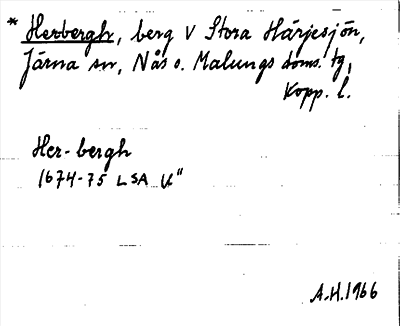 * Herbergh, berg V Stora Härjesjön,
Järna sn, Nås o. Malungs doms. tg,
Kopp. l.
Her-bergh
1674-75 LSA U"
A.H. 1966